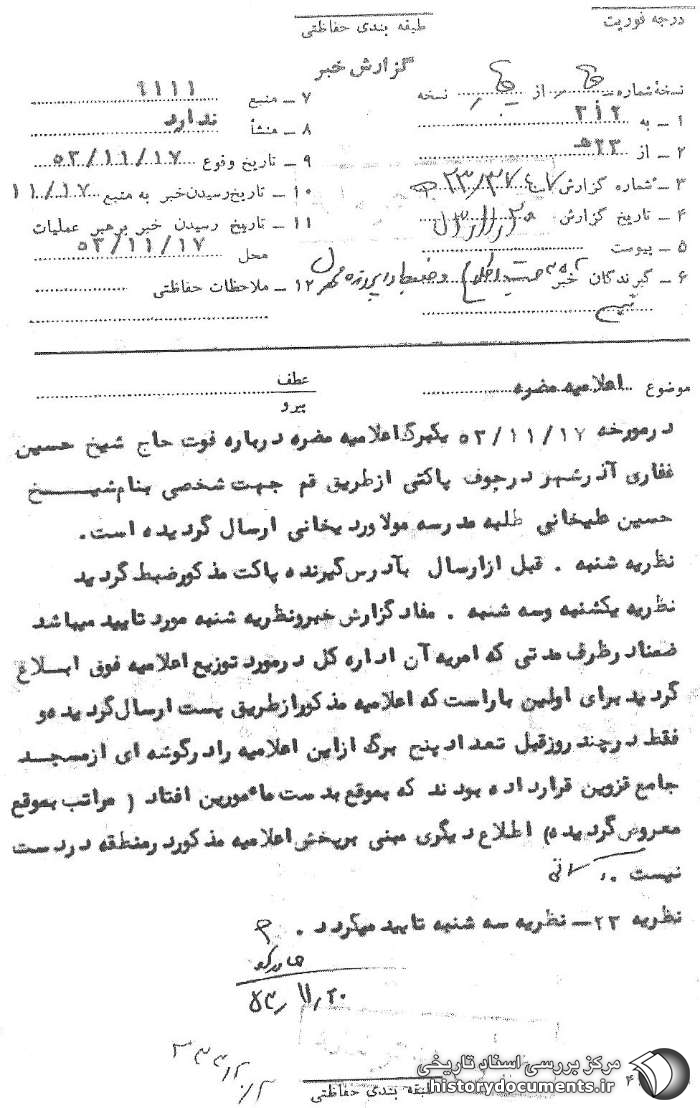 درجه فوریت
طبقه بندی حفاظتی
گزارش خبر
نسخهٔ شماره از نسخه
۱ ـ به ۳۱۲
۲ ـ از ۲۳ هـ
۳ ـ شماره گزارش
۴ ـ تاریخ گزارش
۵ ـ پیوست
۶ ـ گیرندگان خبر
۷ ـ منبع ۹۱۱۱
۸ ـ منشأ ندارد
۹ ـ تاریخ وقوع ۵۳/۱۱/۱۷
۱۰ ـ تاریخ رسیدن خبر به منبع ۱۱/۱۷
۱۱ ـ تاریخ رسیدن خبر برهبر عملیات
محل ۵۳/۱۱/۱۷
۱۲ ـ ملاحظات حفاظتی
موضوع اعلامیه مضره
عطف
پیرو
درمورخه ۵۳/۱۱/۱۷ یکبرگ اعلامیه مضره درباره فوت حاج شیخ حسین
غفاری آذرشهر درجوف پاکتی ازطریق قم جهت شخصی بنام شیخ
حسین علیخانی طلبه مدرسه مولاوردیخانی ارسال گردیده است.
نظریه شنبه . قبل ازارسال بآدرس گیرنده پاکت مذکور ضبط گردید
نظریه یکشنبه وسه شنبه . مفاد گزارش خبرونظریه شنبه مورد تایید میباشد
ضمنا درظرف مدتی که امریه آن اداره کل درمورد توزیع اعلامیه فوق ابلاغ
گردید برای اولین باراست که اعلامیه مذکورازطریق پست ارسال گردیده و
فقط درچند روزقبل تعداد پنج برگ ازاین اعلامیه رادرگوشه ای ازمسجد
جامع قزوین قرارداده بودند که بموقع بدست مأمورین افتاد ( مراتب بموقع
معروض گردیده) اطلاع دیگری مبنی برپخش اعلامیه مذکوردرمنطقه دردست
نیست .
نظریه ۲۳ـ نظریه سه شنبه تایید میگردد .
۵۳/۱۱/۲۰
طبقه بندی حفاظتی
مرکز بررسی اسناد تاریخی
historydocuments.ir